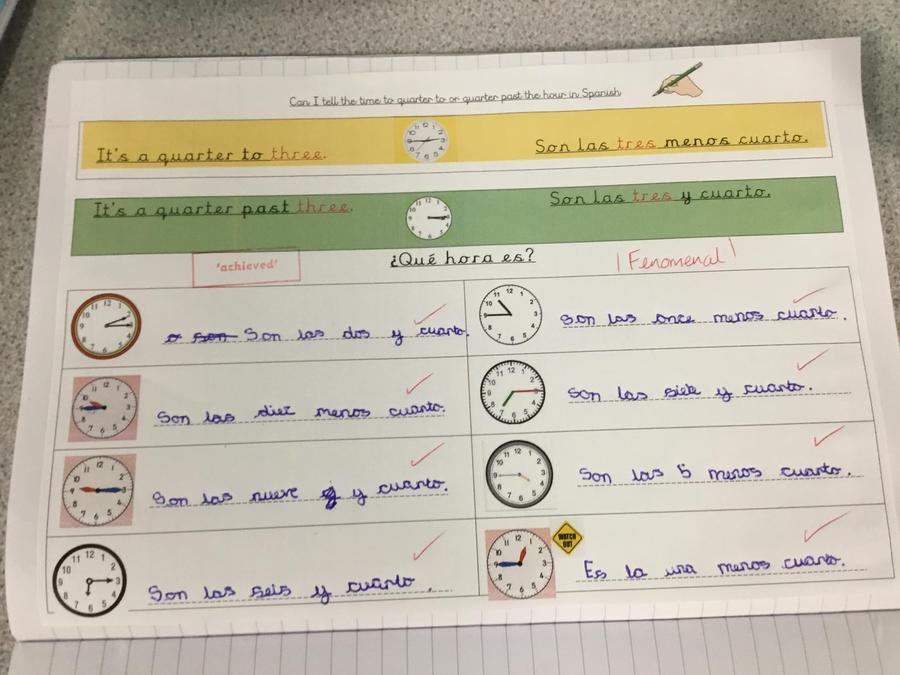 Can I tell the time to quarter to or quarter past the hour in Spanish
It's a quarter to three.
Son las tres menos cuarto.
It's a quarter past three.
Son las tres y cuarto.
'achieved'
¿Qué hora es?
Fenomenal
Son las dos y cuarto.
Son las once menos cuarto.
Son las diez menos cuarto.
Son las siete y cuarto.
Son las nueve y cuarto.
Son las 5 menos cuarto.
Son las seis y cuarto.
WATCH OUT
Es la una menos cuarto.